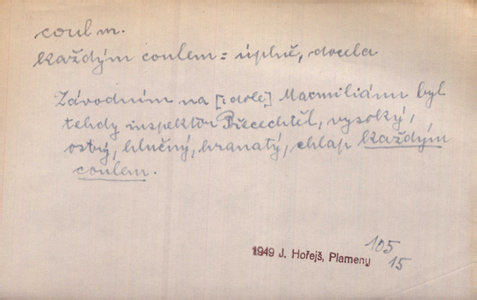 coul m.
každým coulem = úplně, docela
Závodním na [: dole] Maxmiliánu byl
tehdy inspektor Přecechtěl, vysoký,
ostrý, hlučný, hranatý, chlap každým
coulem.
1949 J. Hořejš, Plameny
105
15